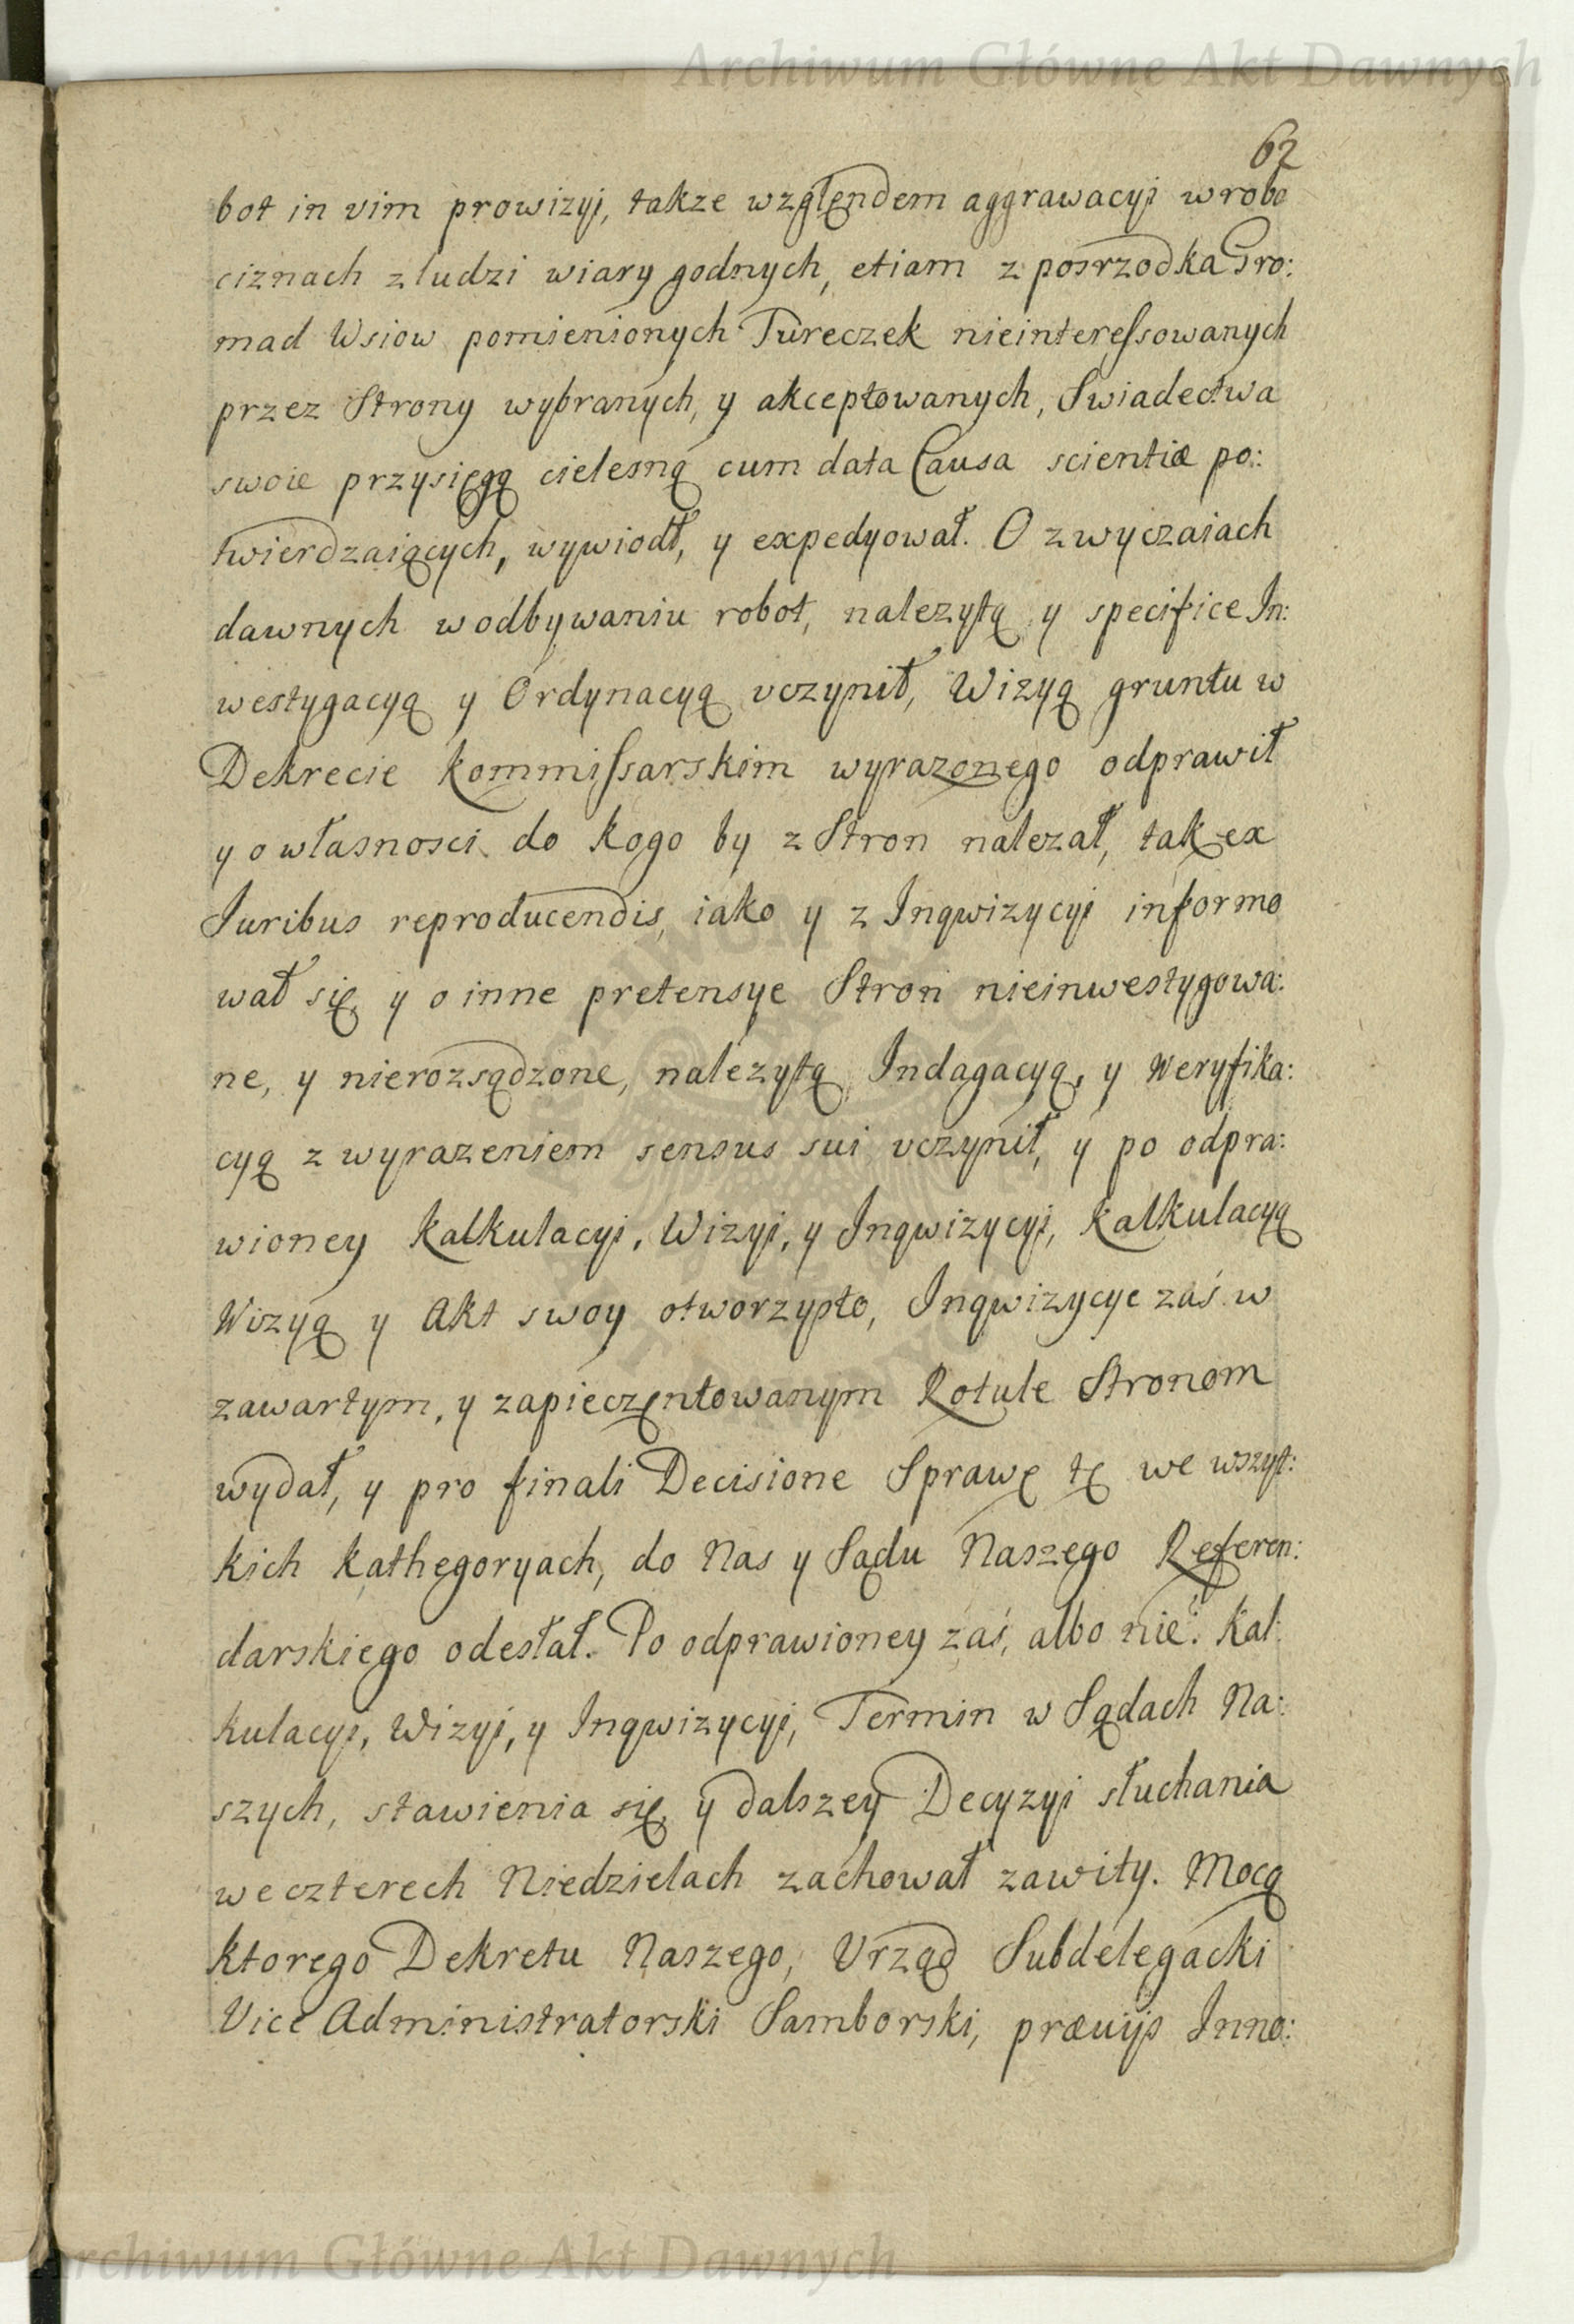 Archiwum Główne Akt Dawnych
62
bot in vim prowizyi, takze względem aggrawacyi w robo
ciznach z ludzi wiary godnych, etiam z posrzodka Gro:
mad Wsiow pomienionych Tureczek nieinteressowanych
przez Strony wybranych, y akceptowanych, Swiadectwa
swoie przysięgą cielesną cum data Causa scientiæ po:
twierdzaiących, wywiodł, y expedyował. O zwyczaiach
dawnych w odbywaniu robot, nalezytą y specifice In:
westygacyą y Ordynacyą vczynił, Wizyą gruntu w
Dekrecie Kommissarskim wyrazonego odprawił
y o własnosci do kogo by z Stron nalezał, tak ex
Juribus reproducendis, iako y z Inqwizycyi informo
wał się, y o inne pretensye Stron nieinwestygowa:
ne, y nierozsądzone, nalezytą Indagacyą, y Weryfika:
cyą z wyrazeniem sensus sui vczynił, y po odpra:
wioney Kalkulacyi, Wizyi, y Inqwizycyi, Kalkulacyą
Wizyą y Akt swoy otworzysto, Inqwizycye zaś w
zawartym, y zapieczętowanym Rotule Stronom
wydał, y pro finali Decisione Sprawę tę we wszyt:
kich Kathegoryach, do Nas y Sądu Naszego Referen:
darskiego odesłał. Po odprawioney zaś, albo nie: Kal:
kulacyi, Wizyi, y Inqwizycyi, Termin w Sądach Na:
szych, stawienia się, y dalszey Decyzyi słuchania
we czterech Niedzielach zachował zawity. Mocą
ktorego Dekretu Naszego, Vrząd Subdelegacki
Vice Administratorski Samborski, prævijs Inno:
Archiwum Główne Akt Dawnych